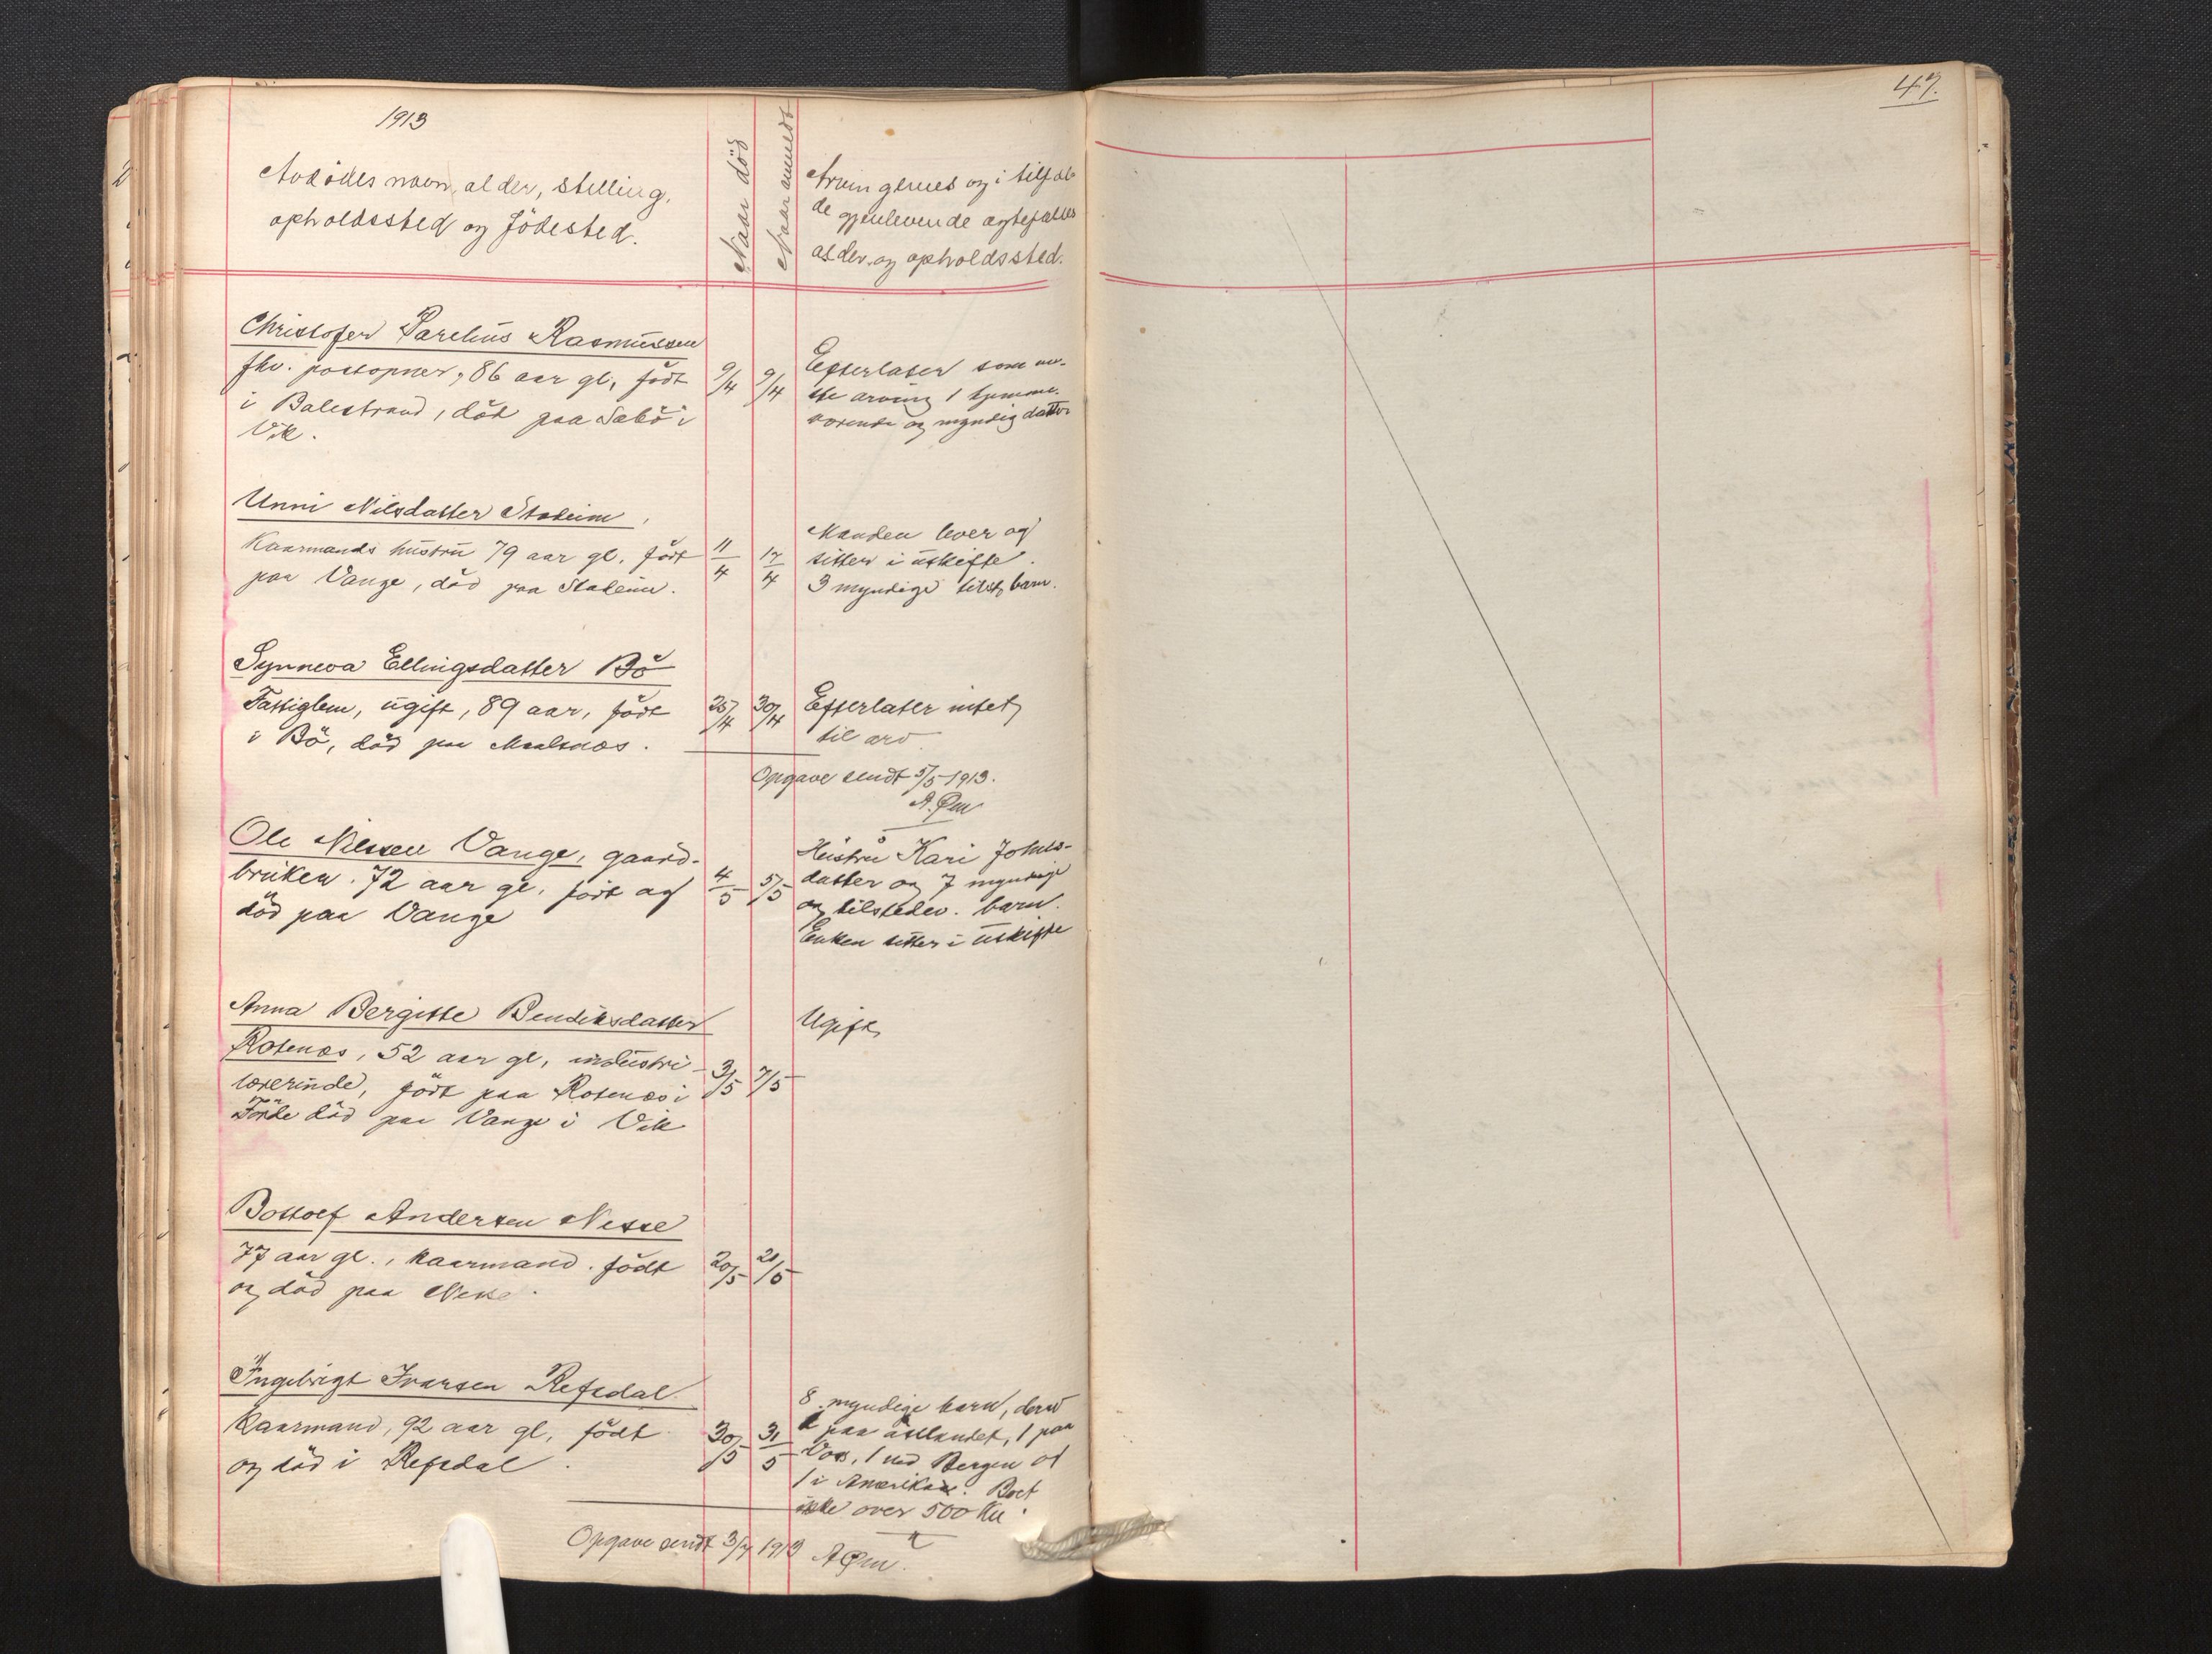 1913
47.
Avdødes navn, alder, stilling,
opholdssted og fødested.
Naar død
Naar anmeldt
Arvingernes og i tilfæl-
de gjenlevende ægtefælles
alder og opholdssted.
Christofer Parelius Rasmussen
fhv. postopner, 86 aar gl, født
i Balestrand, død paa Sæbø i
Vik.
9/4 9/4
Efterlater som ene-
ste arving 1 hjemme-
værende og myndig datter
Unni Nilsdatter Stadheim,
Kaarmands hustru 79 aar gl. født
paa Vange, død paa Stadheim.
11/4 12/4
Manden lever og
sitter i uskifte.
3 myndige tilst. barn.
Synneva Ellingsdatter Bø
Fattiglem, ugift, 89 aar, født
i Bø, død paa Maalsnæs.
25/4 30/4
Efterlater intet
til arv
Opgave sendt 5/5 1913.
A. Øen
Ole Nilssen Vange, gaard-
bruker. 72 aar gl. født og
død paa Vange
4/5 5/5
Hustru Kari Johns-
datter og 7 myndige
og tilstedev. barn.
Enken sitter i uskifte
Anna Bergitte Bendiksdatter
Rotenæs, 52 aar gl, industri-
lærerinde, født paa Rotenæs i
Førde død paa Vange i Vik
3/5 7/5
Ugift
Bottolf Andersen Nesse
77 aar gl., kaarmand. født
og død paa Nesse.
20/5 21/5
Ingebrigt Ivarsen Refsdal
Kaarmand, 92 aar gl, født
og død i Refsdal.
30/5 31/5
8 myndige barn, derav
paa østlandet, 1 paa
Vos, 1 ved Bergen og
1 i Amerika. Boet
ikke over 500 Kr.
Opgave sendt 3/7 1913 A Øen.